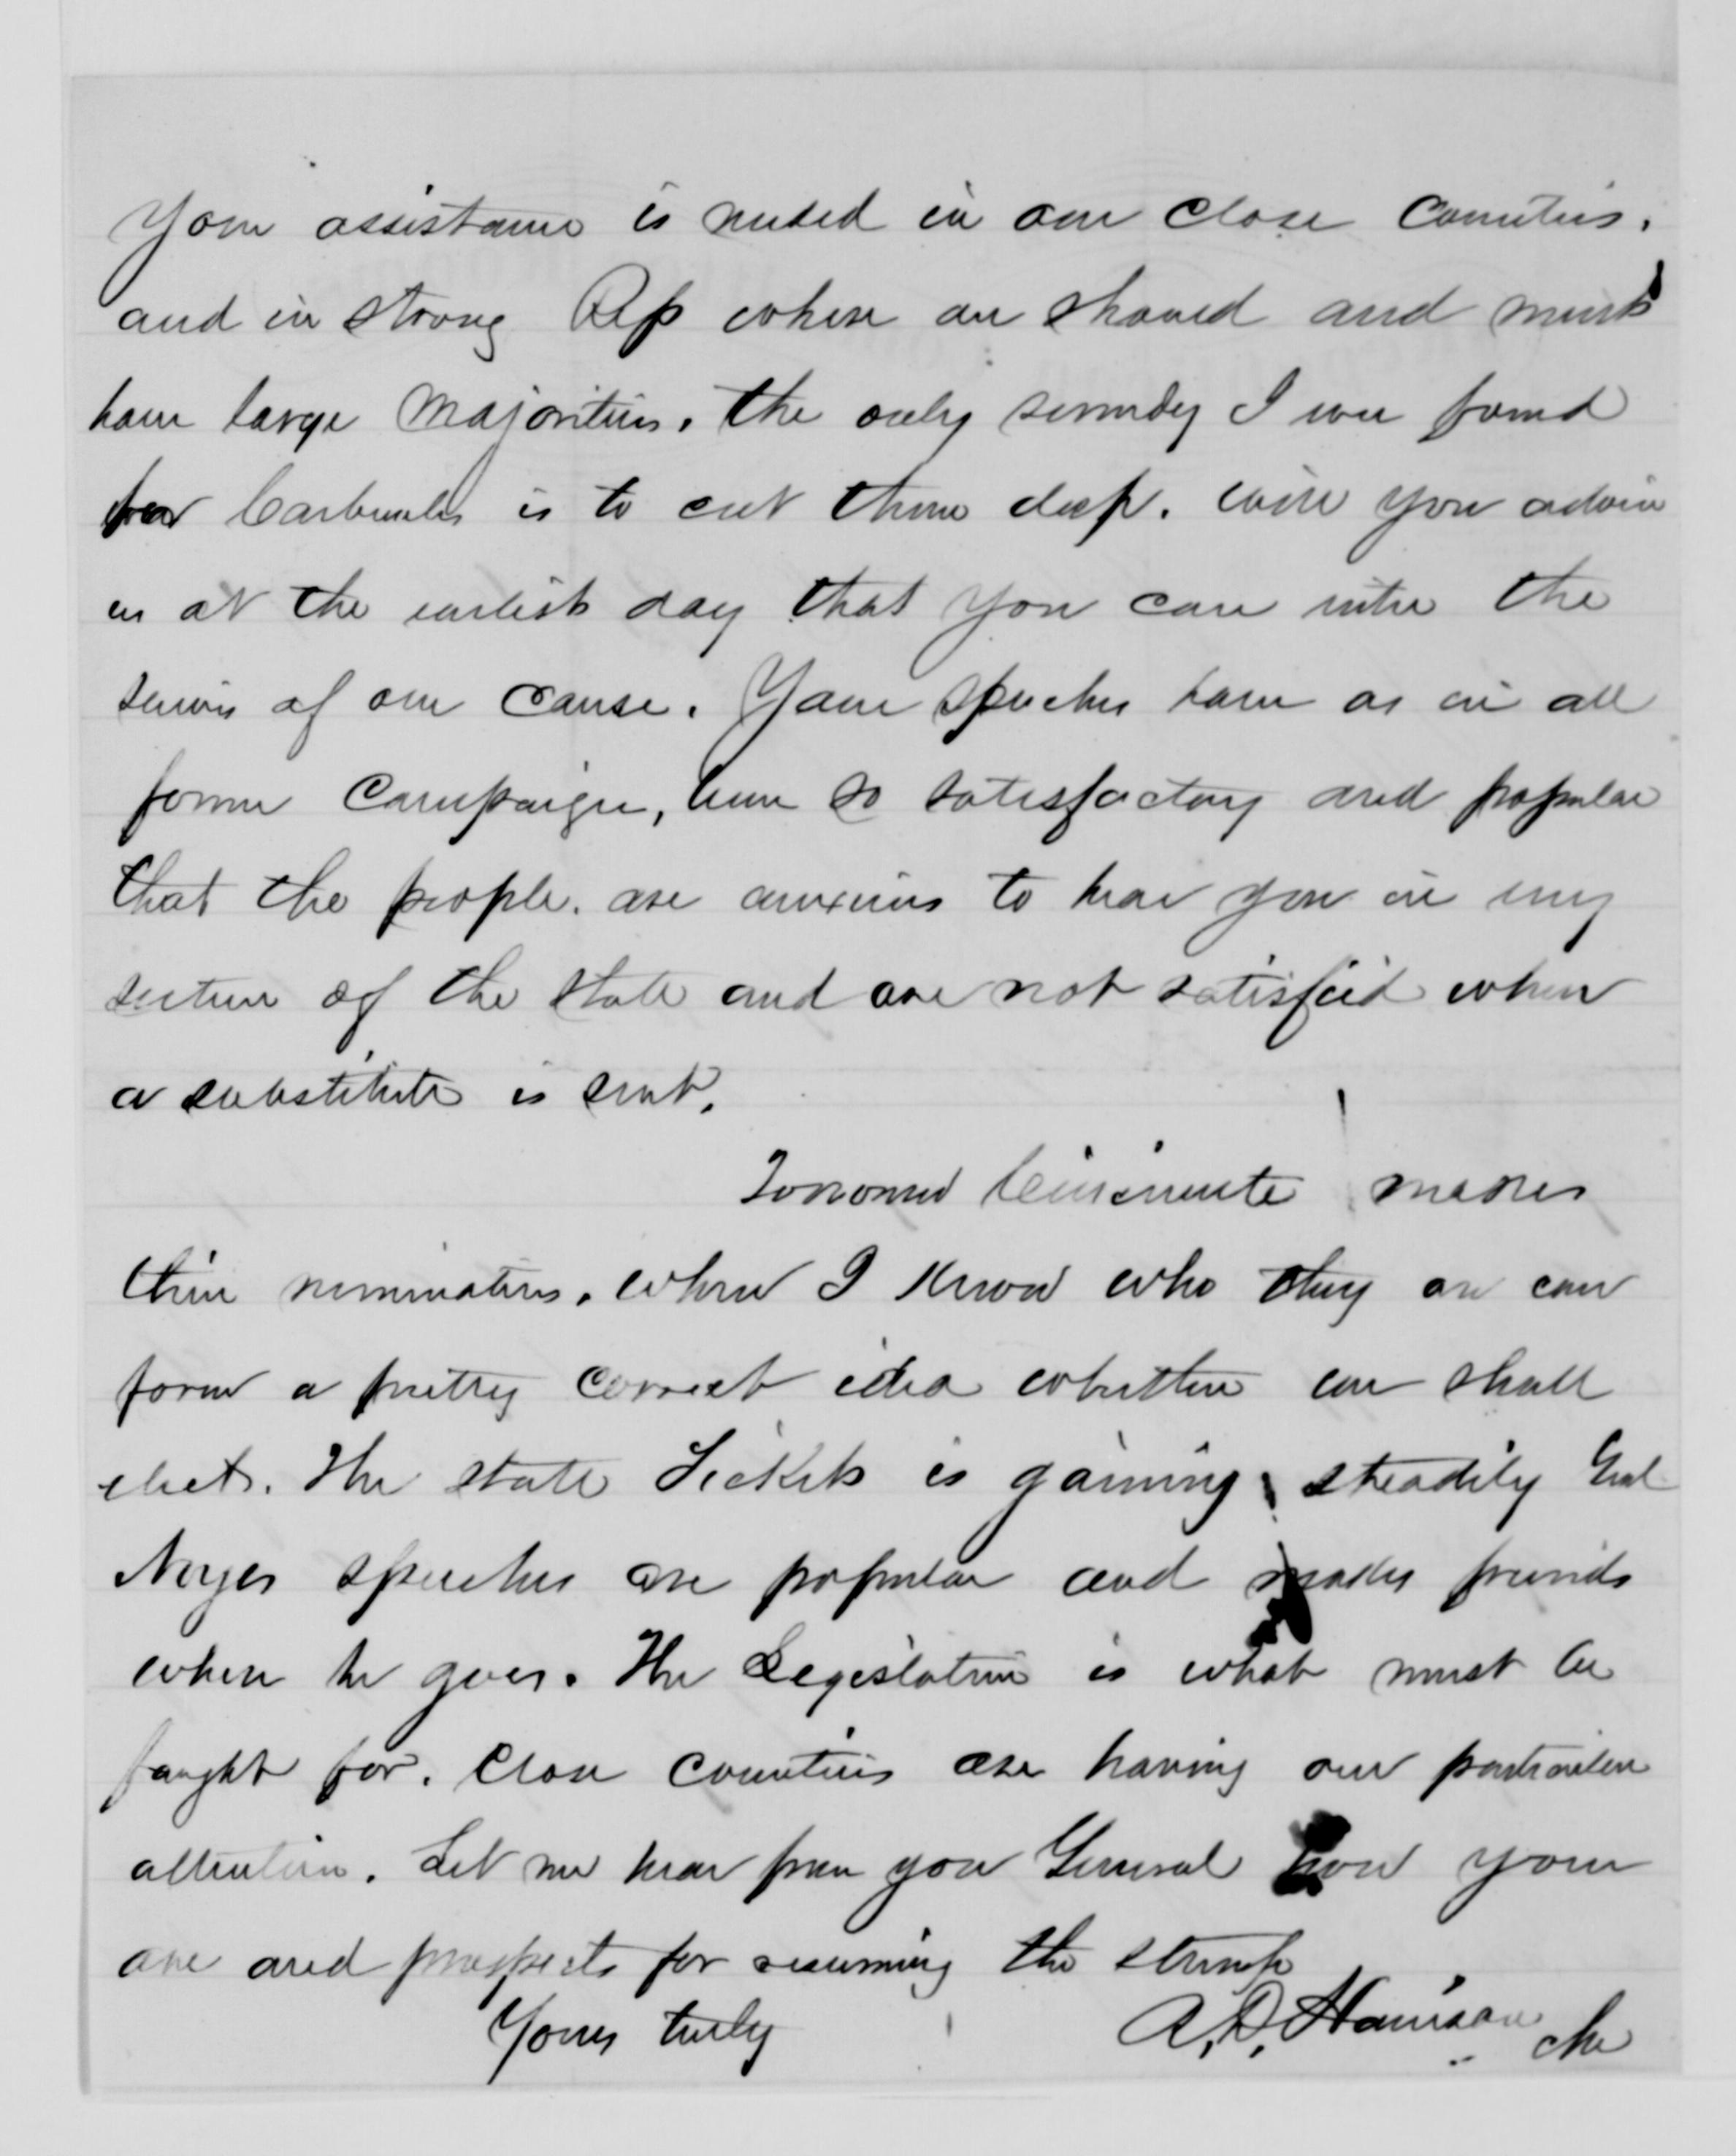 Your assistance is needed in our close Counties.
and in strong Rep where we should and must
have large Majorities. The only remedy I ever found
for Carbuncles is to cut them deep. Will you advise
us at the earliest day that you can enter the
service of our cause. Your speeches have as in all
former Campaign, been so satisfactory and popular
that the people. are anxious to hear you in every
section of the State and are not satisfied when
a substitute is sent.
Tomorrow Cincinnati makes
their nominations. When I know who they are can
form a pretty correct idea whether we shall
elect. The state Tickets is gaining steadily Genl
Noyes speeches are popular and makes friends
where he goes. The Legislature is what must be
fought for. Close Counties are having our particular
attention. Let me hear from you General how you
are and prospects for resuming the stump
Yours truly A. D. Harrison Ch